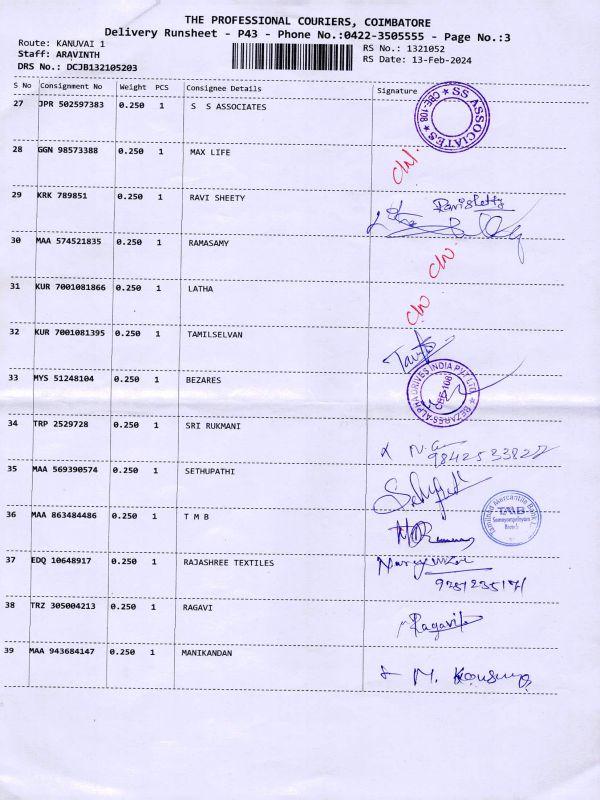 THE PROFESSIONAL COURIERS, COIMBATORE
Delivery Runsheet - P43 - Phone No.:0422-3505555 - Page No.:3
Route: KANUVAI 1
Staff: ARAVINTH
DRS No.: DCJB132105203
RS No.: 1321052
RS Date: 13-Feb-2024
S No Consignment No Weight PCS Consignee Details Signature
27 JPR 502597383 0.250 1 S S ASSOCIATES
SS ASSOCIATES
CBE-108
28 GGN 98573388 0.250 1 MAX LIFE
29 KRK 789851 0.250 1 RAVI SHEETY
Ravishetty
30 MAA 574521835 0.250 1 RAMASAMY
31 KUR 7001081866 0.250 1 LATHA
32 KUR 7001081395 0.250 1 TAMILSELVAN
33 MYS 51248104 0.250 1 BEZARES
BEZARES-ALPHA DRIVES INDIA PVT LTD
CBE-108
34 TRP 2529728 0.250 1 SRI RUKMANI
35 MAA 569390574 0.250 1 SETHUPATHI
36 MAA 863484486 0.250 1 T M B
Tamilnad Mercantile Bank
TMB
Branch
37 EDQ 10648917 0.250 1 RAJASHREE TEXTILES
38 TRZ 305004213 0.250 1 RAGAVI
Ragavi
39 MAA 943684147 0.250 1 MANIKANDAN